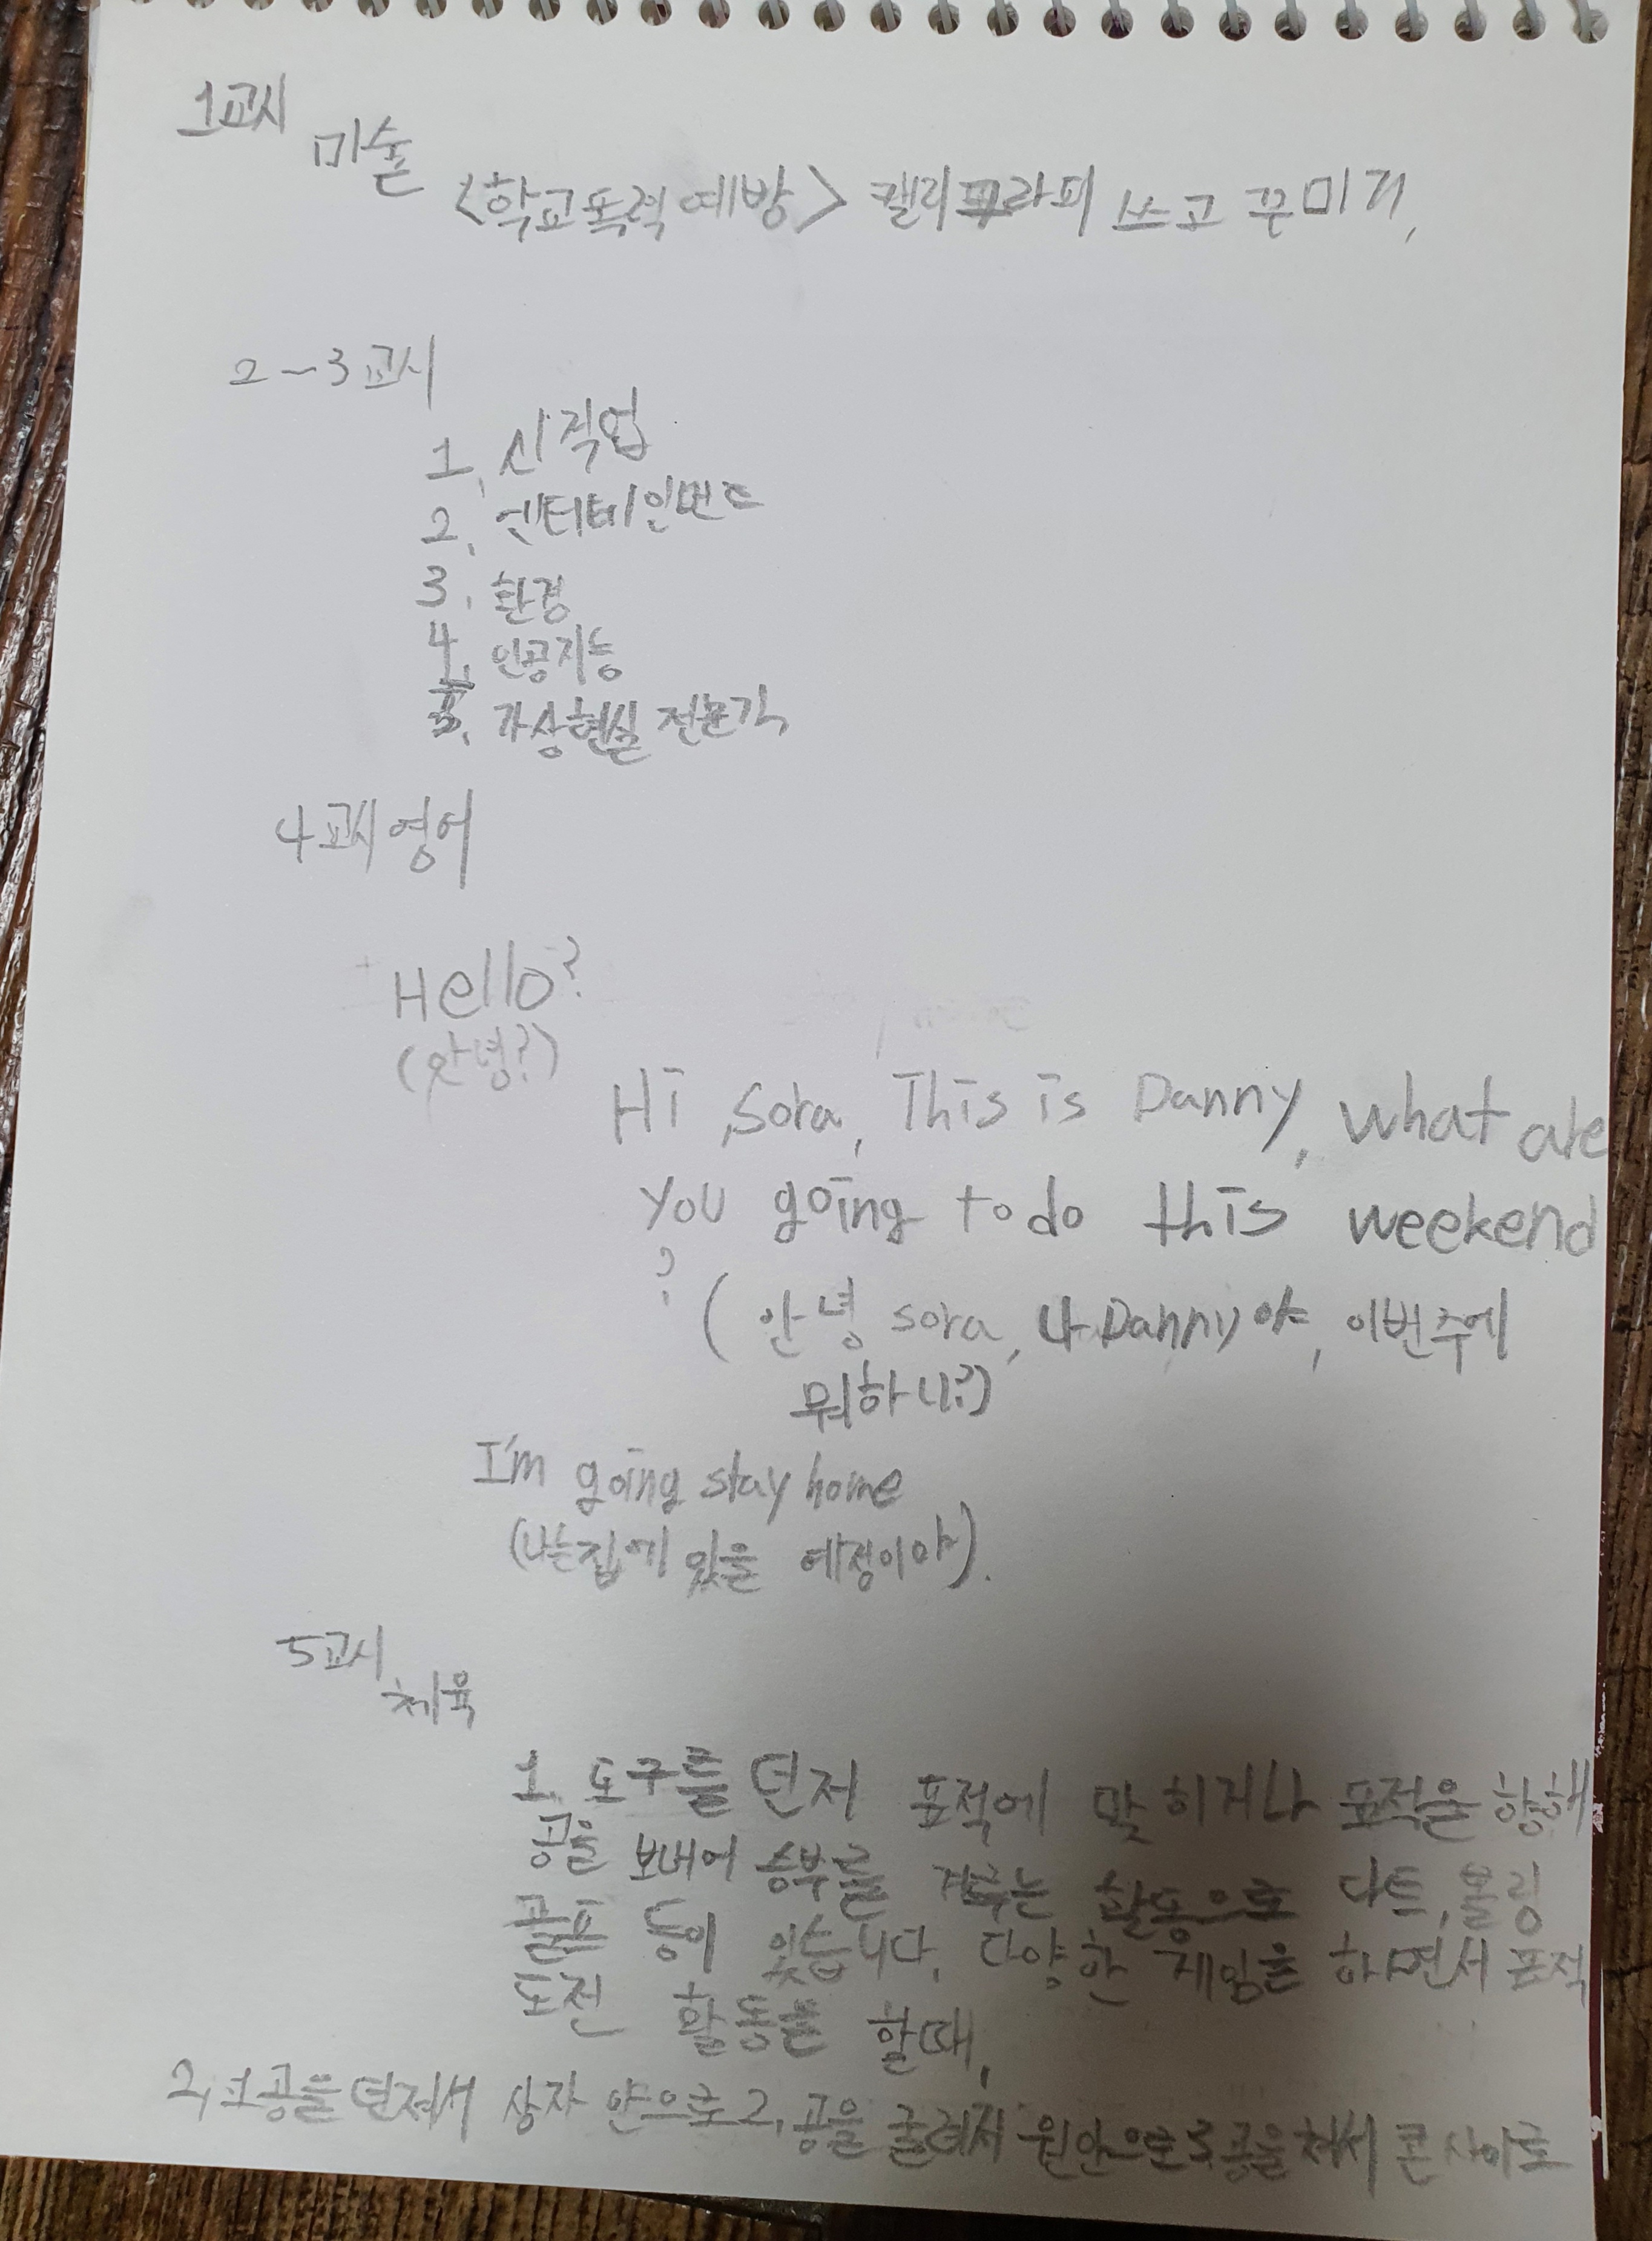 1교시
미술
<학교폭력예방> 캘리그라피 쓰고 꾸미기,
2~3교시
1, 신직업
2, 엔터테인먼트
3, 환경
4, 인공지능
5, 가상현실 전문가
4교시 영어
Hello?
(안녕?)
Hi, Sora, This is Danny, what are
you going to do this weekend
?
(안녕 sora, 나 Danny야, 이번주에
뭐하니?)
I'm going stay home
(나는집에 있을 예정이야).
5교시
체육
1. 도구를 던저 표적에 맞히거나 표적을 향해
공을 보내어 승부를 겨루는 활동으로 다트, 볼링
골프 등이 있습니다. 다양한 게임을 하면서 표적
도전 활동을 할때,
2, 1공을 던져서 상자 안으로 2, 공을 굴려서 원안으로 3공을 쳐서 콘 사이로